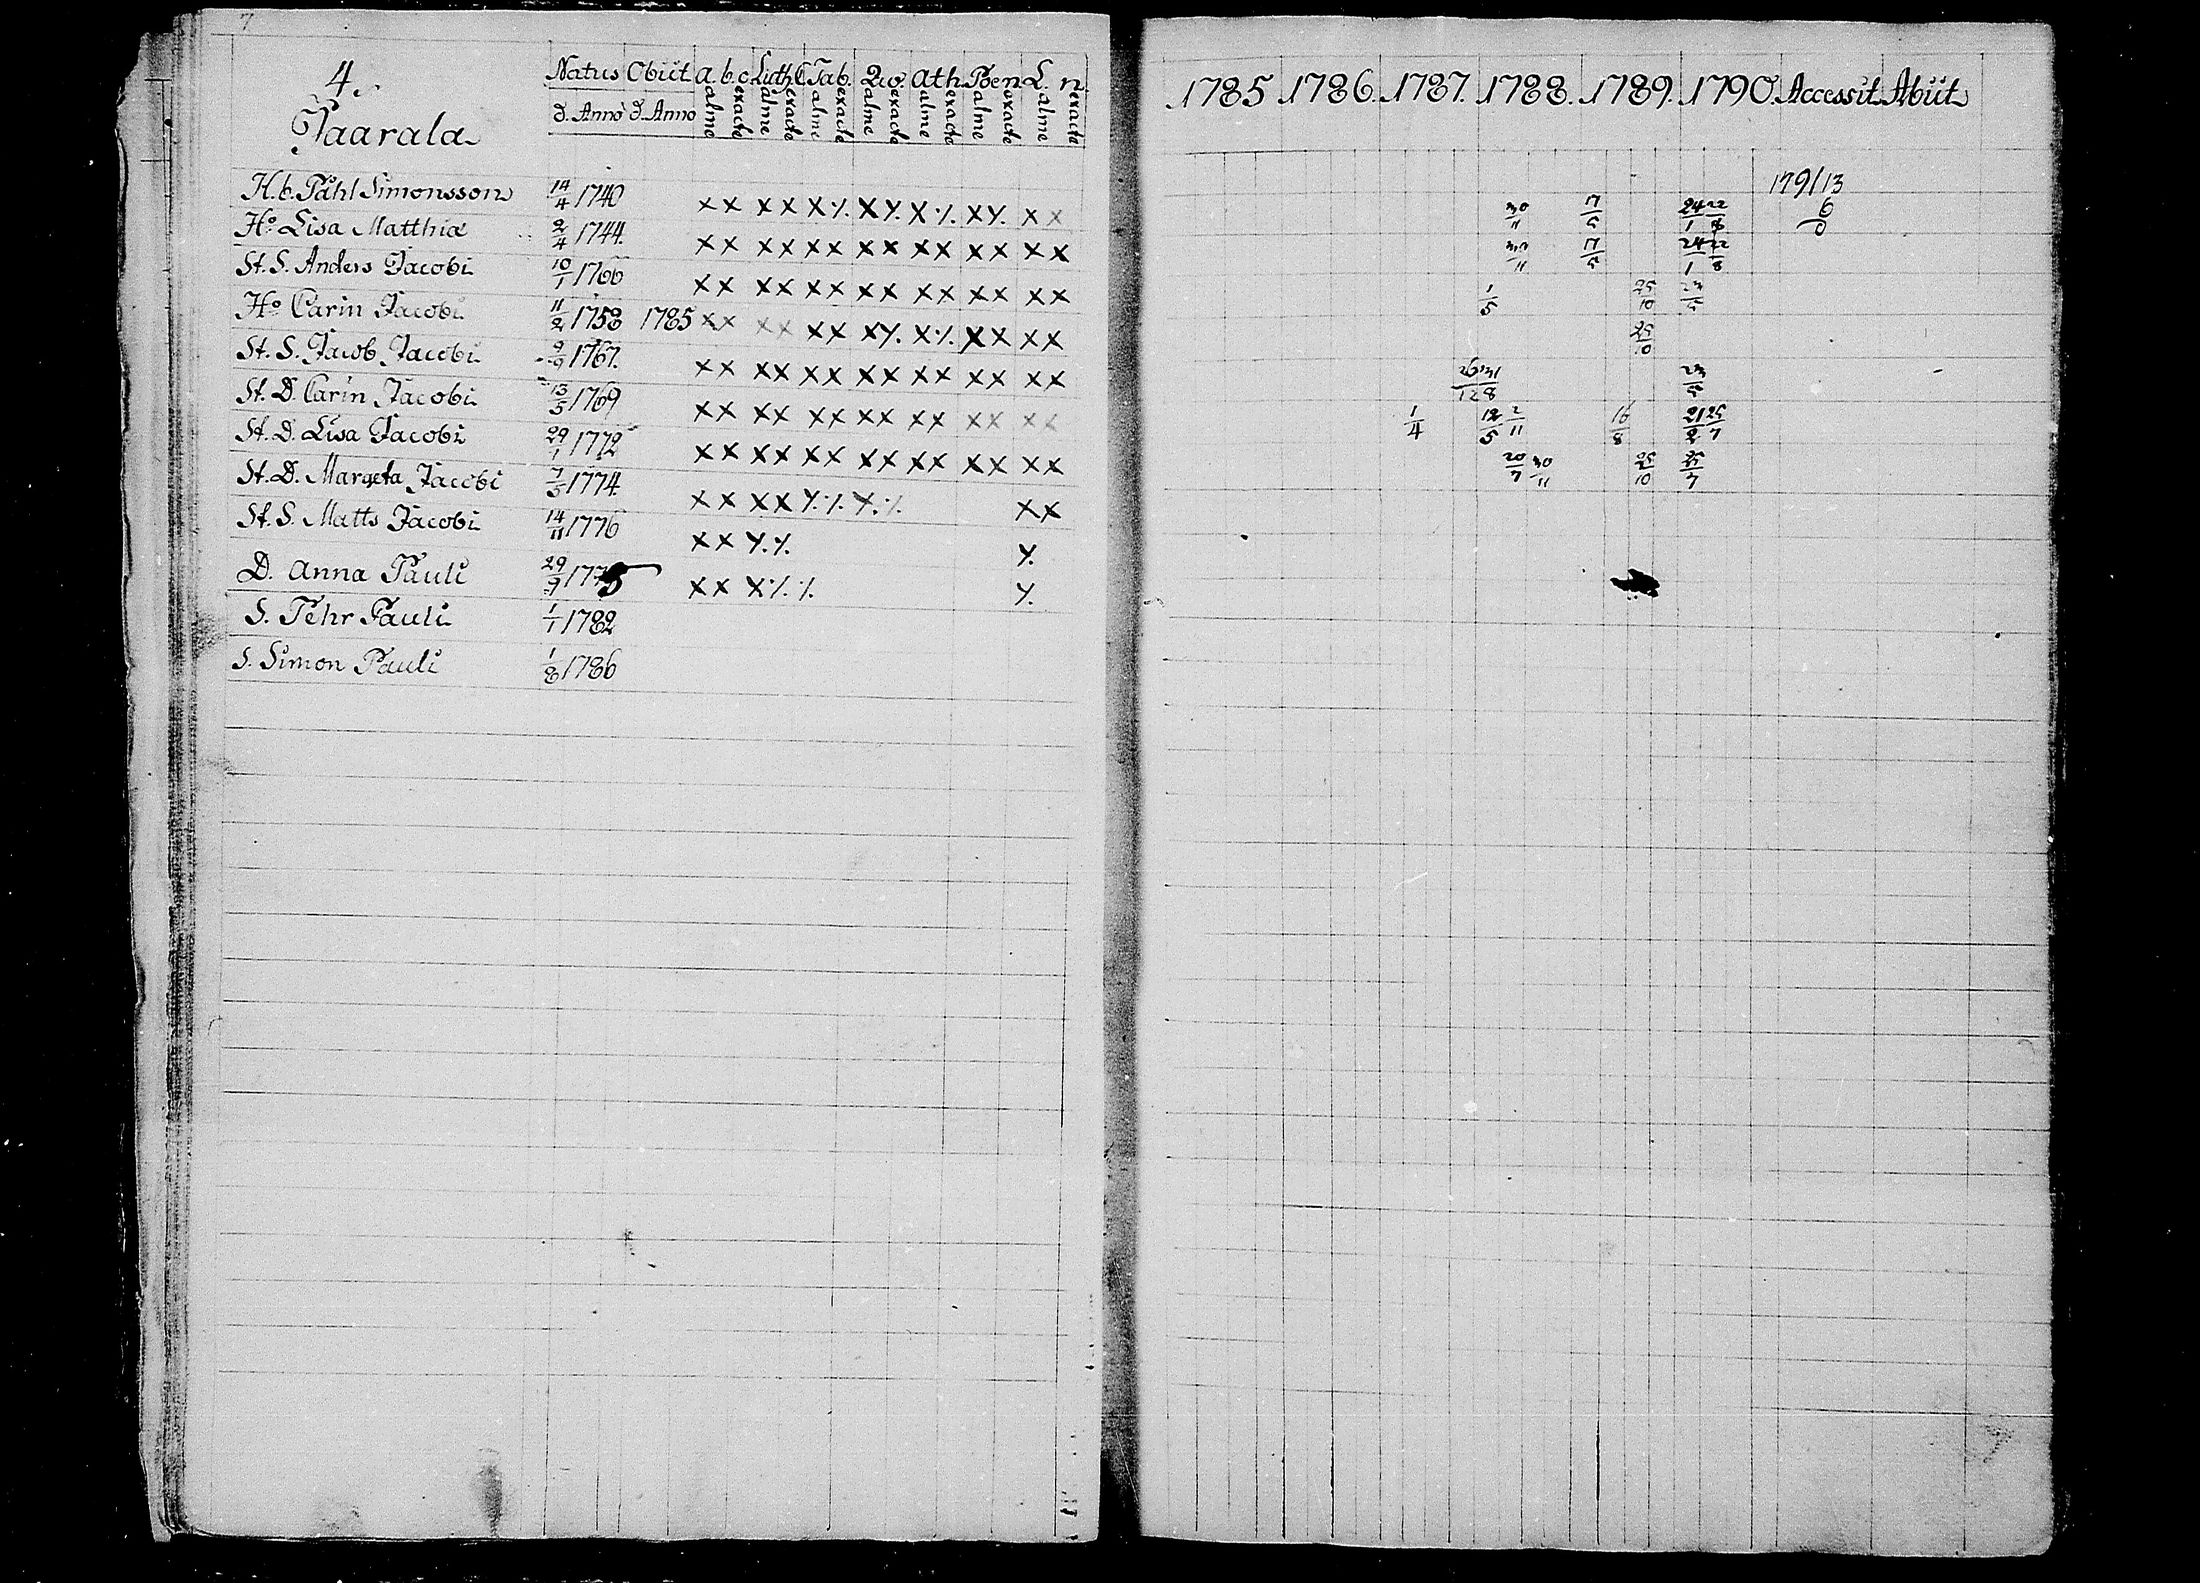 7
4.
Natus Obiit a.b.c. Luth.C. Tab. Qu. Ath. Poen. L. n.
d. Anno d. Anno alme exacte alme exacte alme exacte alme exacte alme exacte alme exacte alme exacte
Taarala
H.b. Påhl Simonsson 14/4 1740 x x x x x ./. x y. x ./. x y. x x
Ho Lisa Matthiæ 2/4 1744. x x x x x x x x x x x x x x
St. S. Anders Jacobi 10/1 1766 x x x x x x x x x x x x x x
Ho Carin Jacobi 11/2 1758 1785 x x x x x x x y. x ./. x x x x
St. S. Jacob Jacobi 9/9 1767. x x x x x x x x x x x x x x
St. D. Carin Jacobi 13/5 1769 x x x x x x x x x x x x x x
St. D. Lisa Jacobi 29/1 1772 x x x x x x x x x x x x x x
St. D. Margeta Jacobi 7/5 1774. x x x x y. ./. x ./. x x
St. S. Matts Jacobi 14/11 1776 x x y. y. y.
D. Anna Pauli 29/9 1775 x x x ./. ./. y.
S. Pehr Pauli 1/1 1782
S. Simon Pauli 1/8 1786
1785 1786. 1787. 1788. 1789. 1790. Accessit Abiit
1791/13
30/11 17/5 24/1 22/8 6
30/11 17/5 24/1 22/8
1/5 25/10 23/5
25/10
26 31/12 8 23/5
1/4 12/5 2/11 16/8 21/2 25/7
20/7 30/11 25/10 25/7